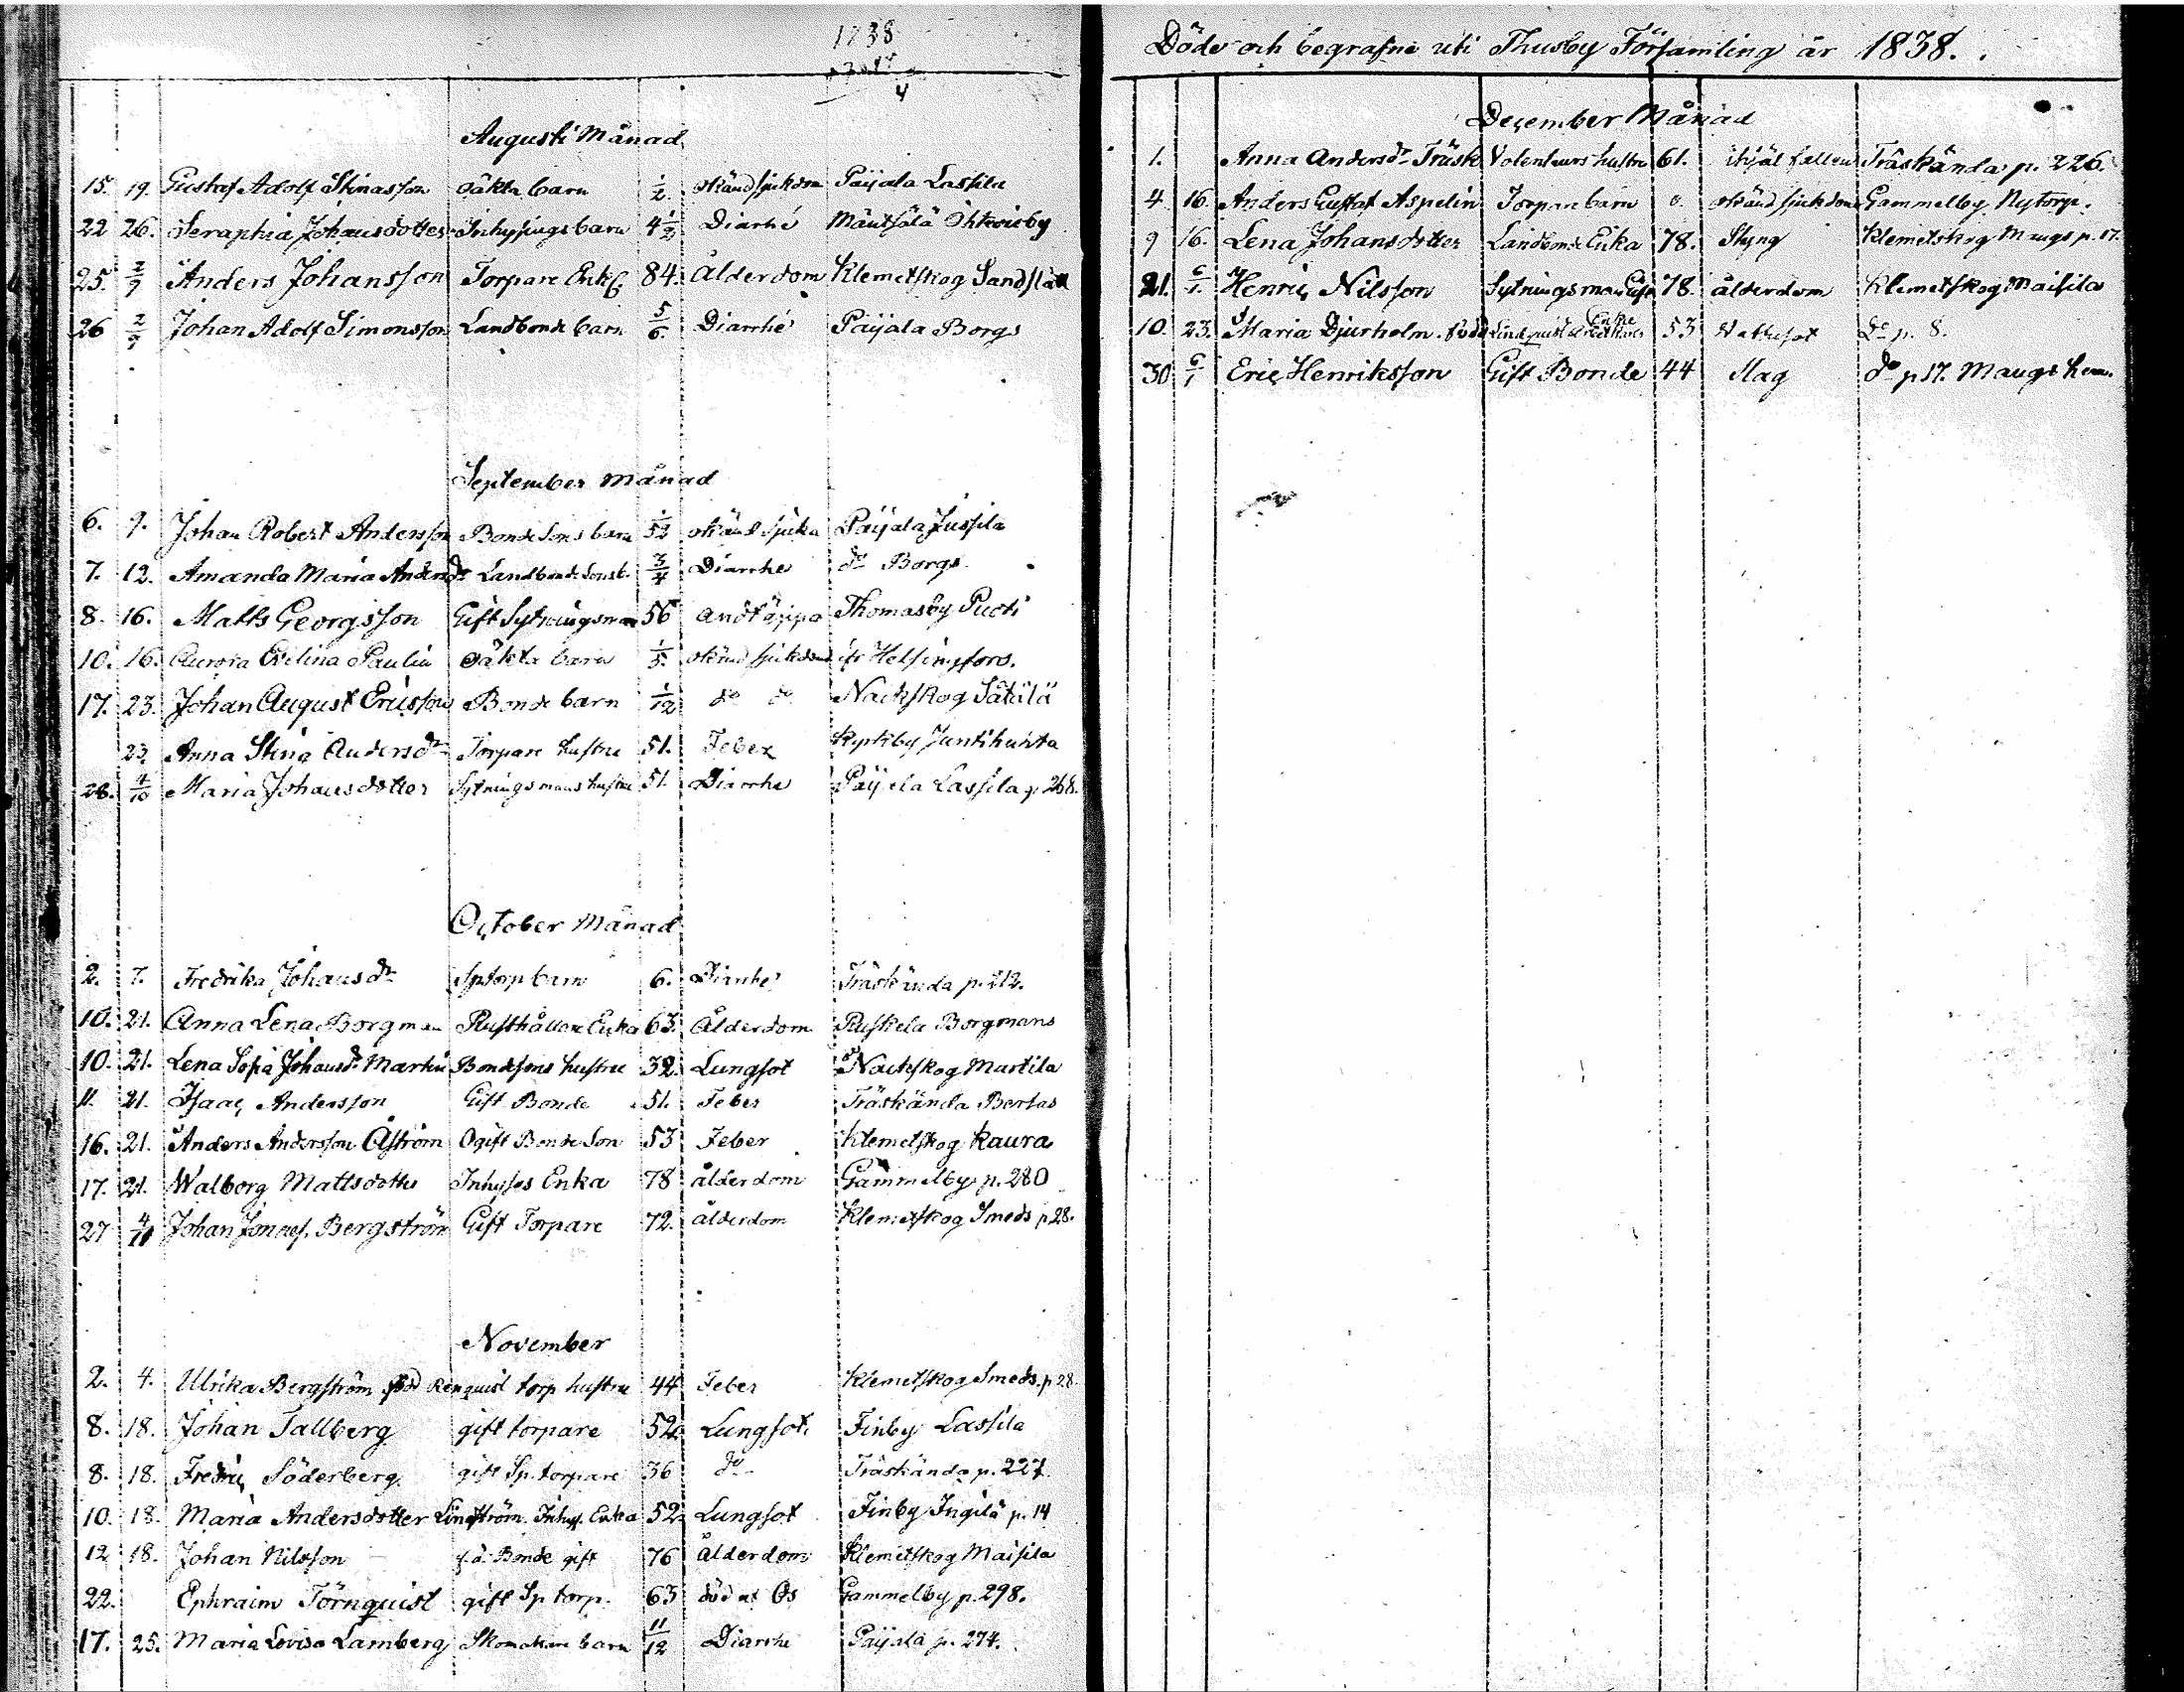 1738
4
Augusti Månad
15. 19. Gustaf Adolf Stinasson oäkta barn 1/2. okänd sjukdom Paijala Lassila
22 26. Seraphia Johansdotter Inhysings barn 4 1/2 Diarrhé Mäntsälä Ohkoisby
25. 2/9 Anders Johansson Torpare Enkl. 84. Ålderdom Klemetskog Sandslätt
26 2/9 Johan Adolf Simonsson Landbonde barn 5/6. Diarrhé Paijala Borgs
September Månad
6. 9. Johan Robert Andersson Bonde Sons barn 1/52 okänd sjuka Paijala Jussila
7. 12. Amanda Maria Andersdr Landbonde Sons b. 3/4 Diarrhe do Borgs.
8. 16. Matts Georgsson Gift Sytningsman 56 andtäppa Thomasby Puoti
10. 16. Aurora Evelina Paulin oäkta barn 1/5. okänd sjukdom ifr Helsingfors.
17. 23. Johan August Ericsson Bonde barn 1/12 do do Nackskog Sätilä
23 Anna Stina Andersdr Torpare hustru 51. Feber Kyrkby Juntihuhta
28. 4/10 Maria Johansdotter Sytningsmans hustru 51. Diarrhe Paijala Lassila p. 268.
October Månad
2. 7. Fredrika Johansdr Sptorp barn 6. Diarrhé Träskända p. 212.
10. 21. Anna Lena Borgman Rusthållare Enka 63. Ålderdom Ruskela Borgmans
10. 21. Lena Sofia Johansdr Martin Bondesons hustru 32. Lungsot Nackskog Martila
11. 21. Isaac Andersson Gift Bonde 51. Feber Träskända Bertas
16. 21. Anders Andersson Åström Ogift Bonde Son 53 Feber Klemetskog Kaura
17. 21. Walborg Mattsdotter Inhyses Enka 78 ålderdom Gammelby p. 280
27 4/11 Johan Jonaes. Bergström Gift Torpare 72. ålderdom Klemetskog Smeds p 28.
November
2. 4. Ulrika Bergström född Renquist torp hustru 44 Feber Klemetskog Smeds. p 28.
8. 18. Johan Tallberg gift torpare 52. Lungsot. Finby Lassila
8. 18. Fredric Söderberg. gift Sp. torpare 36 do Träskända p. 227.
10. 18. Maria Andersdotter Lindström Inhys. Enka 52. Lungsot Finby Ingilä p. 14
12 18. Johan Nilsson f.d. Bonde gift 76 Ålderdom Klemetskog Maisila
22. Ephraim Törnquist gift Sp torp. 63 död af Os Gammelby p. 298.
17. 25. Maria Lovisa Lamberg Skomakare barn 11/12 Diarrhe Paijala p. 274.
Döde och begrafne uti Thusby Församling år 1838.
December Månad
1. Anna Andersdr Träsk Volenteurs hustru 61. ihjäl fallen Träskända p. 226.
4 16. Anders Gustaf Aspelin Torpare barn 0. okänd sjukdom Gammelby Nytorp.
9 16. Lena Johansdotter Landbonde Enka 78. Styng Klemetskog Mangs p. 17.
21. 6/1 Henric Nilsson Sytningsman Gift 78. ålderdom Klemetskog Maisila
10 23. Maria Djurholm. född Lindquist Enka 53 Vattusot Do p. 8.
30 6/1 Eric Henriksson Gift Bonde 44 Slag do p 17. Mangs hem.